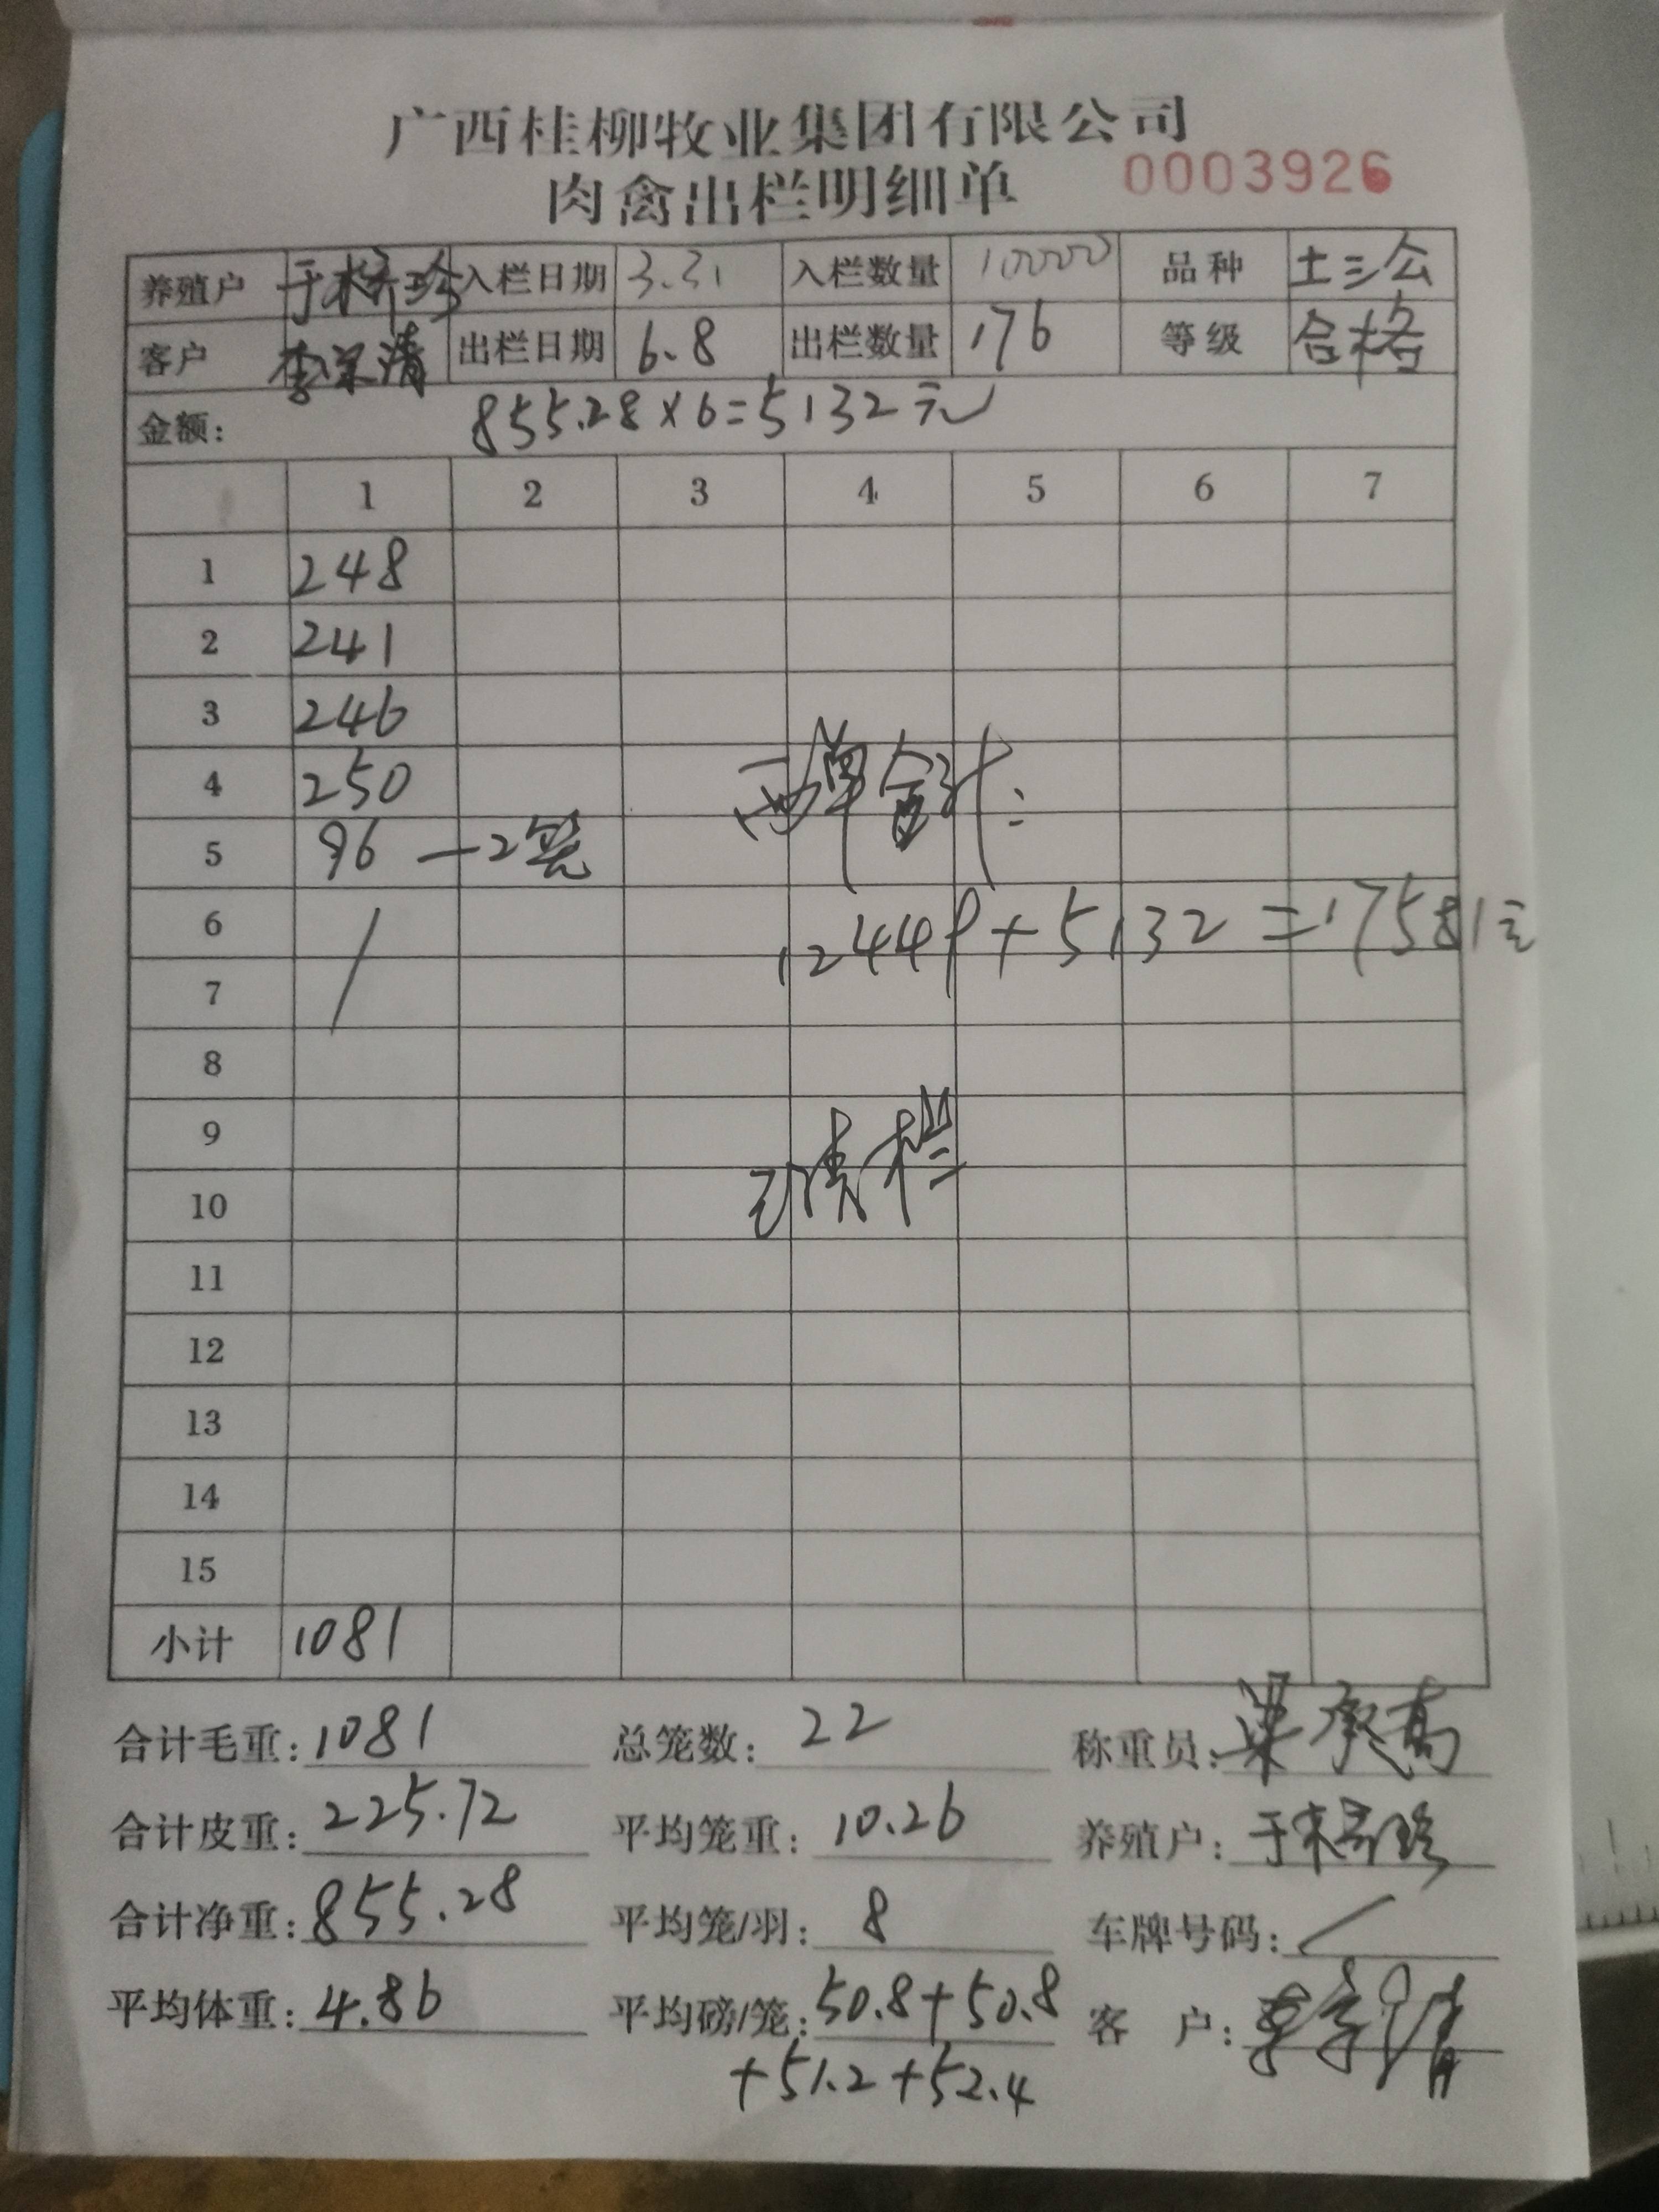 广西桂柳牧业集团有限公司
肉禽出栏明细单 0003926
养殖户 于 珍 入栏日期 3.31 入栏数量 10000 品种 土三公
客户 李 清 出栏日期 6.8 出栏数量 176 等级 合格
金额: 855.28×6=5132元
1 2 3 4 5 6 7
1 248
2 241
3 246
4 250
两单合计:
5 96 —2笼
6 /
12449+5132=17581元
7
8
9
已清栏
10
11
12
13
14
15
小计 1081
合计毛重: 1081 总笼数: 22 称重员: 梁承高
合计皮重: 225.72 平均笼重: 10.26 养殖户: 于 珍
合计净重: 855.28 平均笼/羽: 8 车牌号码: /
平均体重: 4.86 平均磅/笼: 50.8+50.8 客户: 李 清
+51.2+52.4